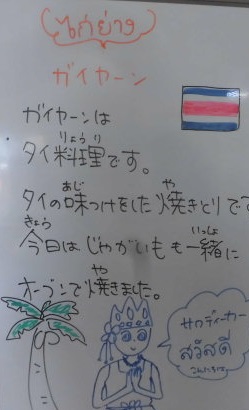 ไก่ย่าง
ガイヤーン
ガイヤーンは
りょうり
タイ料理です。
あじ や
タイの味つけをした焼きとりです
きょう いっしょ
今日はじゃがいもも一緒に
や
オーブンで焼きました。
サワディーカー
สวัสดี
こんにちは